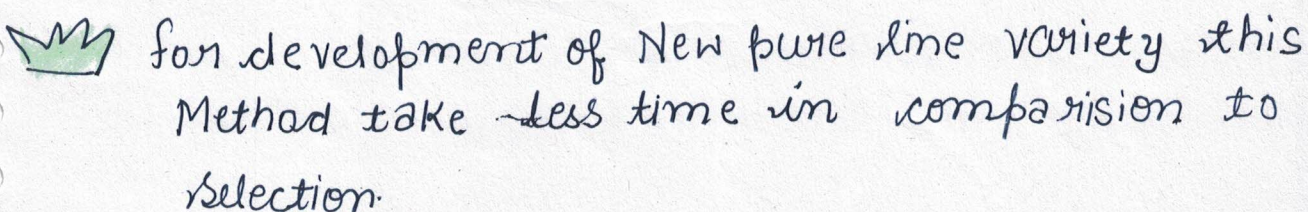 for development of New pure line variety this
Method take less time in comparision to
selection.